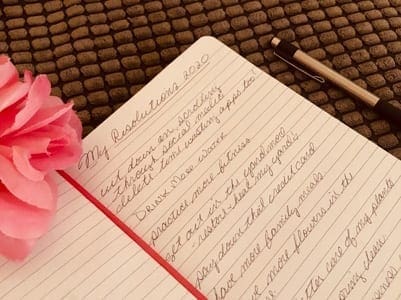 My Resolutions 2020
cut down on scrolling
through social media
delete time wasting apps too
Drink More water
practice more fitness
get out in the yard more
restore + heal my yards
pay down that credit card
have more family meals
more flowers in the
better care of my plants
clean